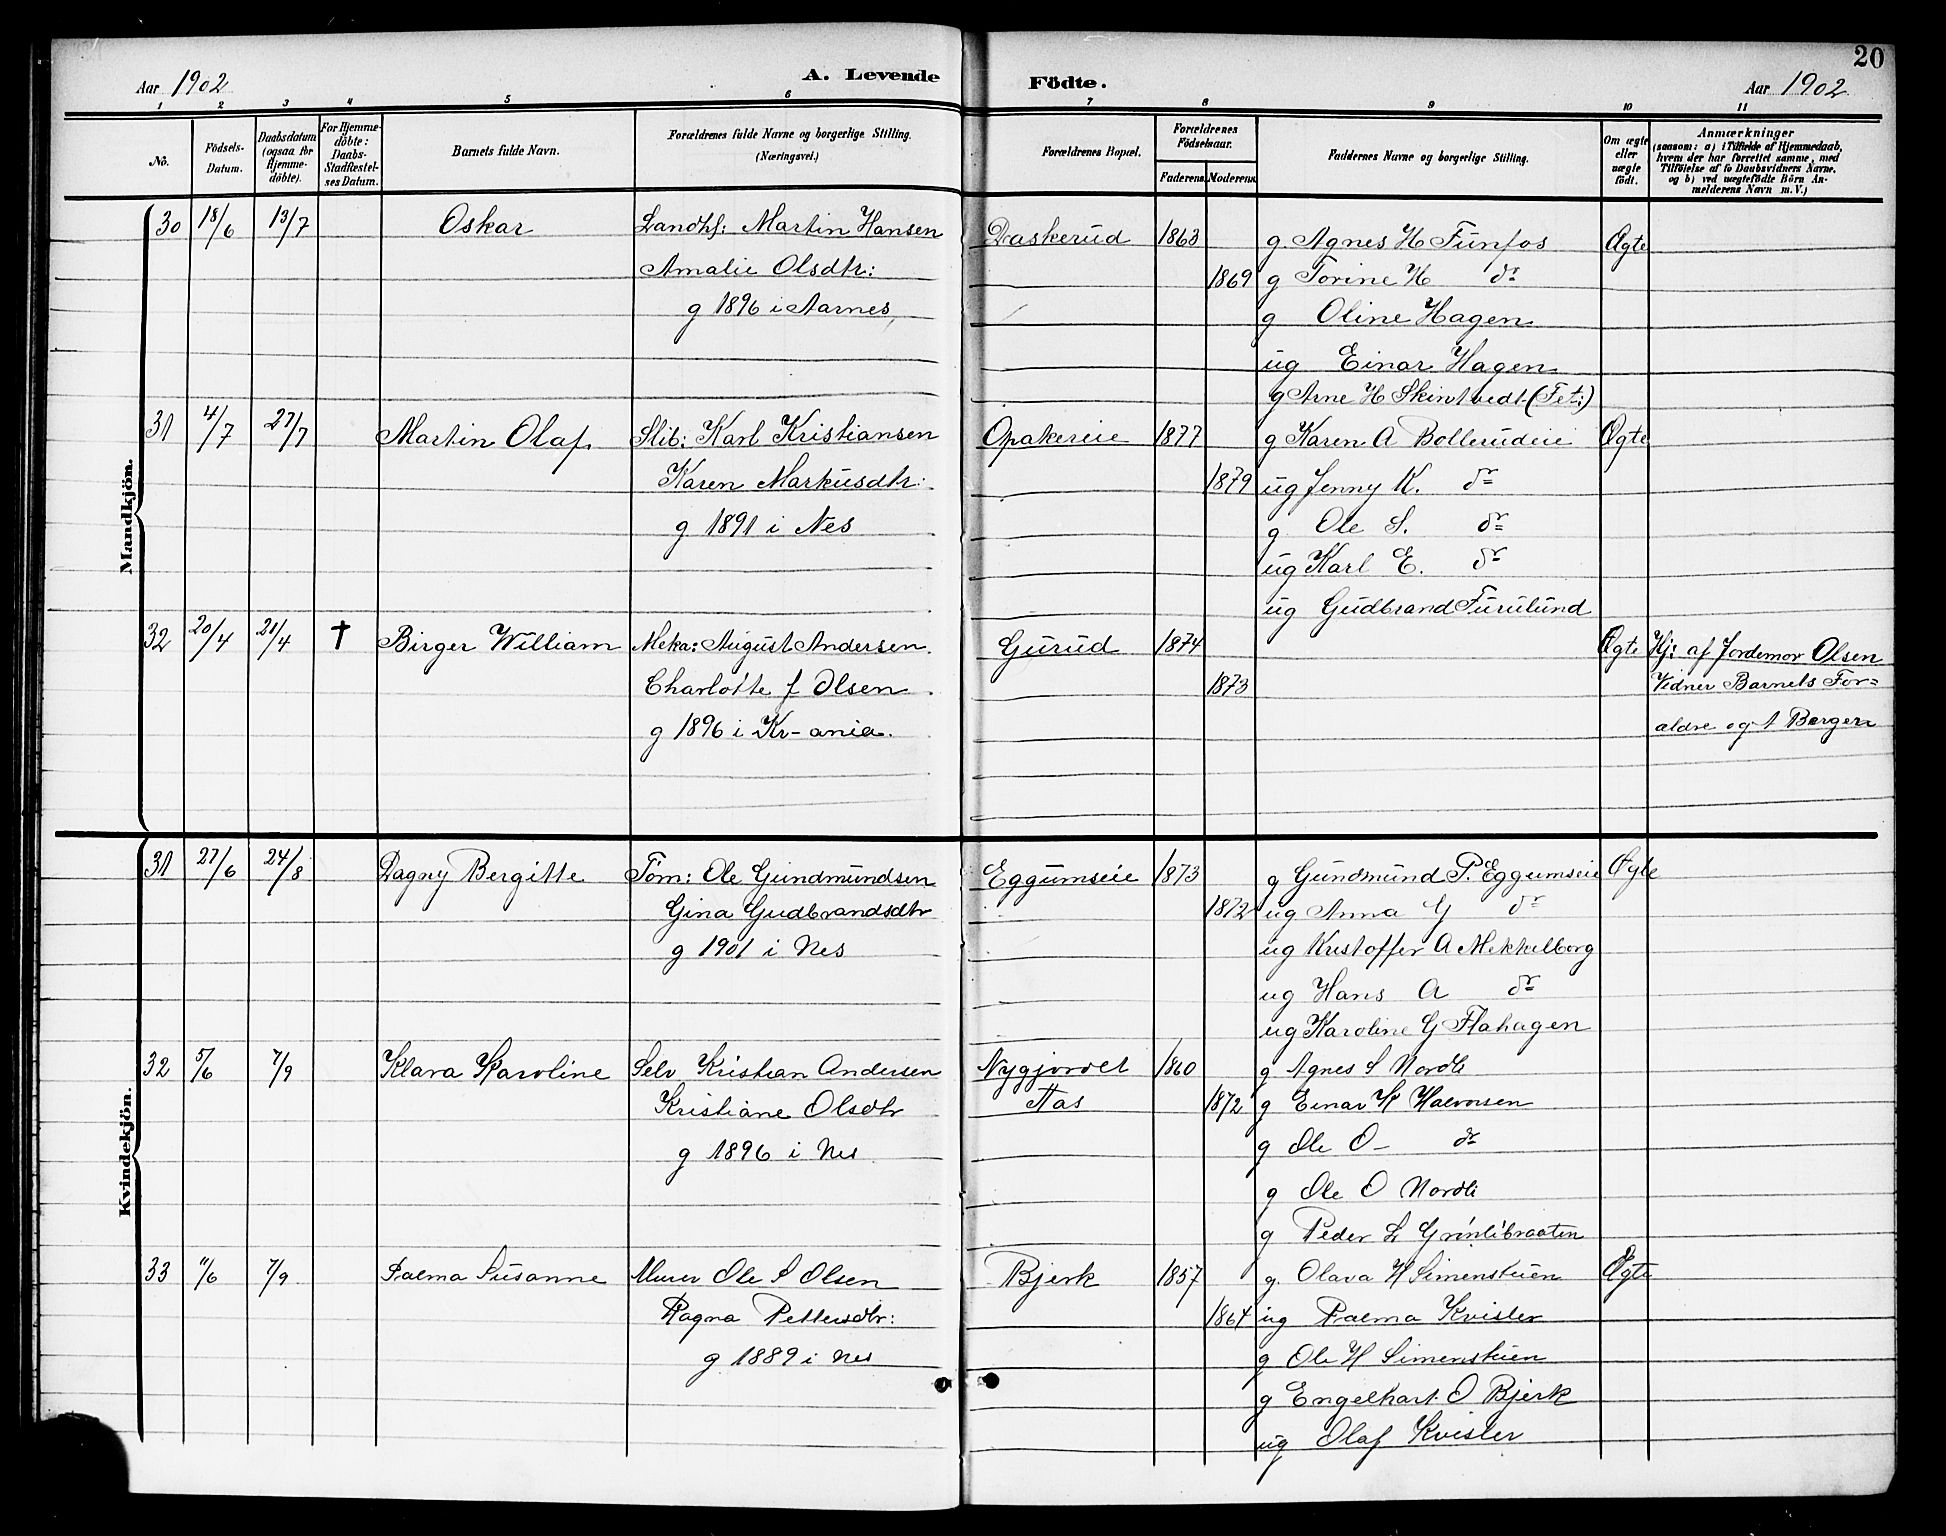 20
Aar 1902 A. Levende Födte. Aar 1902
1 2 3 4 5 6 7 8 9 10 11
No.
Födsels-Datum.
Daabsdatum (ogsaa for Hjemme-döbte).
For Hjemme-döbte: Daabs-Stadfæstel-ses Datum.
Barnets fulde Navn.
Forældrenes fulde Navne og borgerlige Stilling. (Næringsvei.)
Forældrenes Bopæl.
Forældrenes Födselsaar.
Faderens. Moderens.
Faddernes Navne og borgerlige Stilling.
Om ægte eller uægte födt.
Anmærkninger
(saasom: a) i Tilfælde af Hjemmedaab, hvem der har forrettet samme, med Tilföielse af to Daabsvidners Navne, og b) ved uægtefödte Börn An-melderens Navn m. V.)
Mandkjön.
30 18/6 13/7 Oskar Landhl: Martin Hansen Daskerud 1863 g Agnes H Funfos Ægte
Amalie Olsdtr: 1869 g Torine H do
g 1896 i Aarnes g Oline Hagen
ug Einar Hagen
g Arne H Skintvedt (Fet:)
31 4/7 27/7 Martin Olaf Slib: Karl Kristiansen Opakereie 1877 g Karen A Bollerudeie Ægte
Karen Markusdtr: 1879 ug Jenny K. do
g 1891 i Nes g Ole S. do
ug Karl E. do
ug Gudbrand Furulund
32 20/4 21/4 † Birger William Meka: August Andersen Gurud 1874 Ægte Hj: af Jordemor Olsen
Charlotte f Olsen 1873 Vidner Barnets For=
g 1896 i Kr-ania. ældre og A Bergen
Kvindekjön.
31 27/6 24/8 Dagny Bergitte Töm: Ole Gundmundsen Eggumseie 1873 g Gundmund P. Eggumseie Ægte
Gina Gudbrandsdtr 1872 ug Anna G do
g 1901 i Nes ug Kristoffer A Mekkelborg
ug Hans A do
ug Karoline G Flahagen
32 5/6 7/9 Klara Karoline Selv Kristian Andersen Nygjordet 1860 g Agnes S Nordli
Kristiane Olsdtr Aas 1872 g Einar H Halvorsen
g 1896 i Nes g Ole O- do
g Ole O Nordli
g Peder L Grinlibraaten
33 11/6 7/9 Palma Susanne Murer Ole S Olsen Bjerk 1857 g. Olava H Simenstuen Ægte
Ragna Pettersdtr: 1864 ug Palma Kvisler
g 1889 i Nes g Ole H Simenstuen
g Engelhart O Bjerk
ug Olaf Kvisler